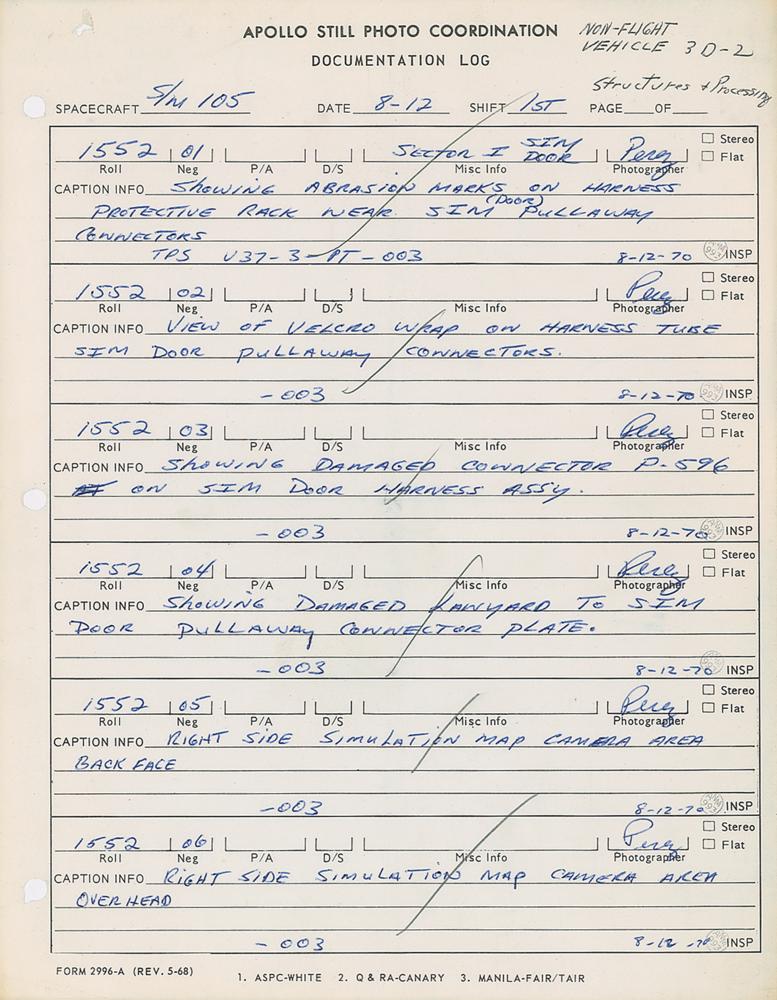 APOLLO STILL PHOTO COORDINATION
DOCUMENTATION LOG
NON-FLIGHT
VEHICLE 3D-2
Structures + Processing
SPACECRAFT S/M 105 DATE 8-12 SHIFT 1ST PAGE OF
1552 01 SECTOR I SIM DOOR Perez Stereo
Roll Neg P/A D/S Misc Info Photographer Flat
CAPTION INFO SHOWING ABRASION MARKS ON HARNESS
PROTECTIVE RACK NEAR SIM (DOOR) PULLAWAY
CONNECTORS
TPS V37-3-PT-003 8-12-70 INSP
1552 02 Perez Stereo
Roll Neg P/A D/S Misc Info Photographer Flat
CAPTION INFO VIEW OF VELCRO WRAP ON HARNESS TUBE
SIM DOOR PULLAWAY CONNECTORS.
-003 8-12-70 INSP
1552 03 Perez Stereo
Roll Neg P/A D/S Misc Info Photographer Flat
CAPTION INFO SHOWING DAMAGED CONNECTOR P-596
ON SIM DOOR HARNESS ASSY.
-003 8-12-70 INSP
1552 04 Perez Stereo
Roll Neg P/A D/S Misc Info Photographer Flat
CAPTION INFO SHOWING DAMAGED LANYARD TO SIM
DOOR PULLAWAY CONNECTOR PLATE.
-003 8-12-70 INSP
1552 05 Perez Stereo
Roll Neg P/A D/S Misc Info Photographer Flat
CAPTION INFO RIGHT SIDE SIMULATION MAP CAMERA AREA
BACK FACE
-003 8-12-70 INSP
1552 06 Perez Stereo
Roll Neg P/A D/S Misc Info Photographer Flat
CAPTION INFO RIGHT SIDE SIMULATION MAP CAMERA AREA
OVERHEAD
-003 8-12-70 INSP
FORM 2996-A (REV. 5-68) 1. ASPC-WHITE 2. Q & RA-CANARY 3. MANILA-FAIR/TAIR